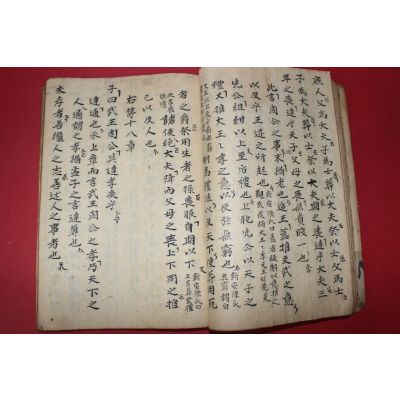 庶人父爲大夫子爲士葬以大夫祭以士父爲士
子爲大夫葬以士祭以大夫期之喪達乎大夫三
年之喪達乎天子父母之喪無貴賤一也
此言周公之事末猶老也追王蓋推文武之意
以及乎王迹之所起也
先公組紺以上至后稷也上祀先公以天子之
禮又推大王王季之意以及於無窮也 新安陳氏曰
制爲禮法以及天下使葬用死
者之爵祭用生者之祿喪服自期以下
諸侯絶大夫降而父母之喪上下同之推
己以及人也
右第十八章
子曰武王周公其達孝矣乎
達通也承上章而言武王周公之孝乃天下之
人通謂之孝猶孟子之言達尊也
夫孝者善繼人之志善述人之事者也